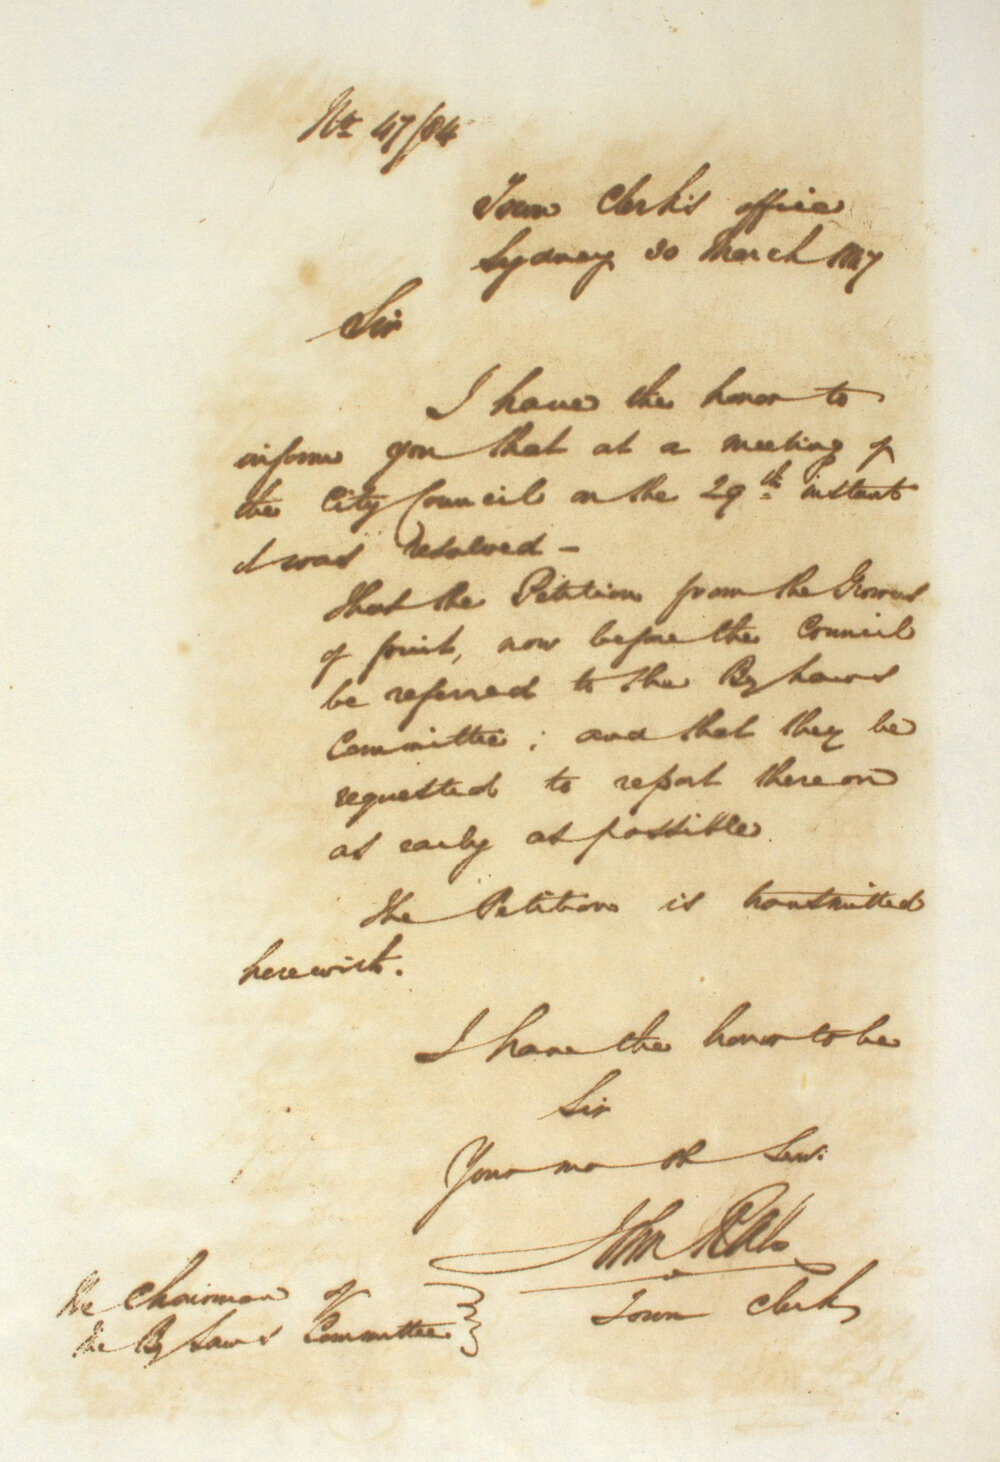 No 47/84
Town Clerk's office
Sydney 30 March 1847
Sir
I have the honor to
inform you that at a meeting of
the City Council on the 29th instant
it was resolved –
That the Petition from the Growers
of fruit, now before the Council
be referred to the By Laws
Committee; and that they be
requested to report thereon
as early as possible.
The Petition is transmitted
herewith.
I have the honor to be
Sir
Your mo ob Serv.
John
Town Clerk
The Chairman of
the By Laws Committee